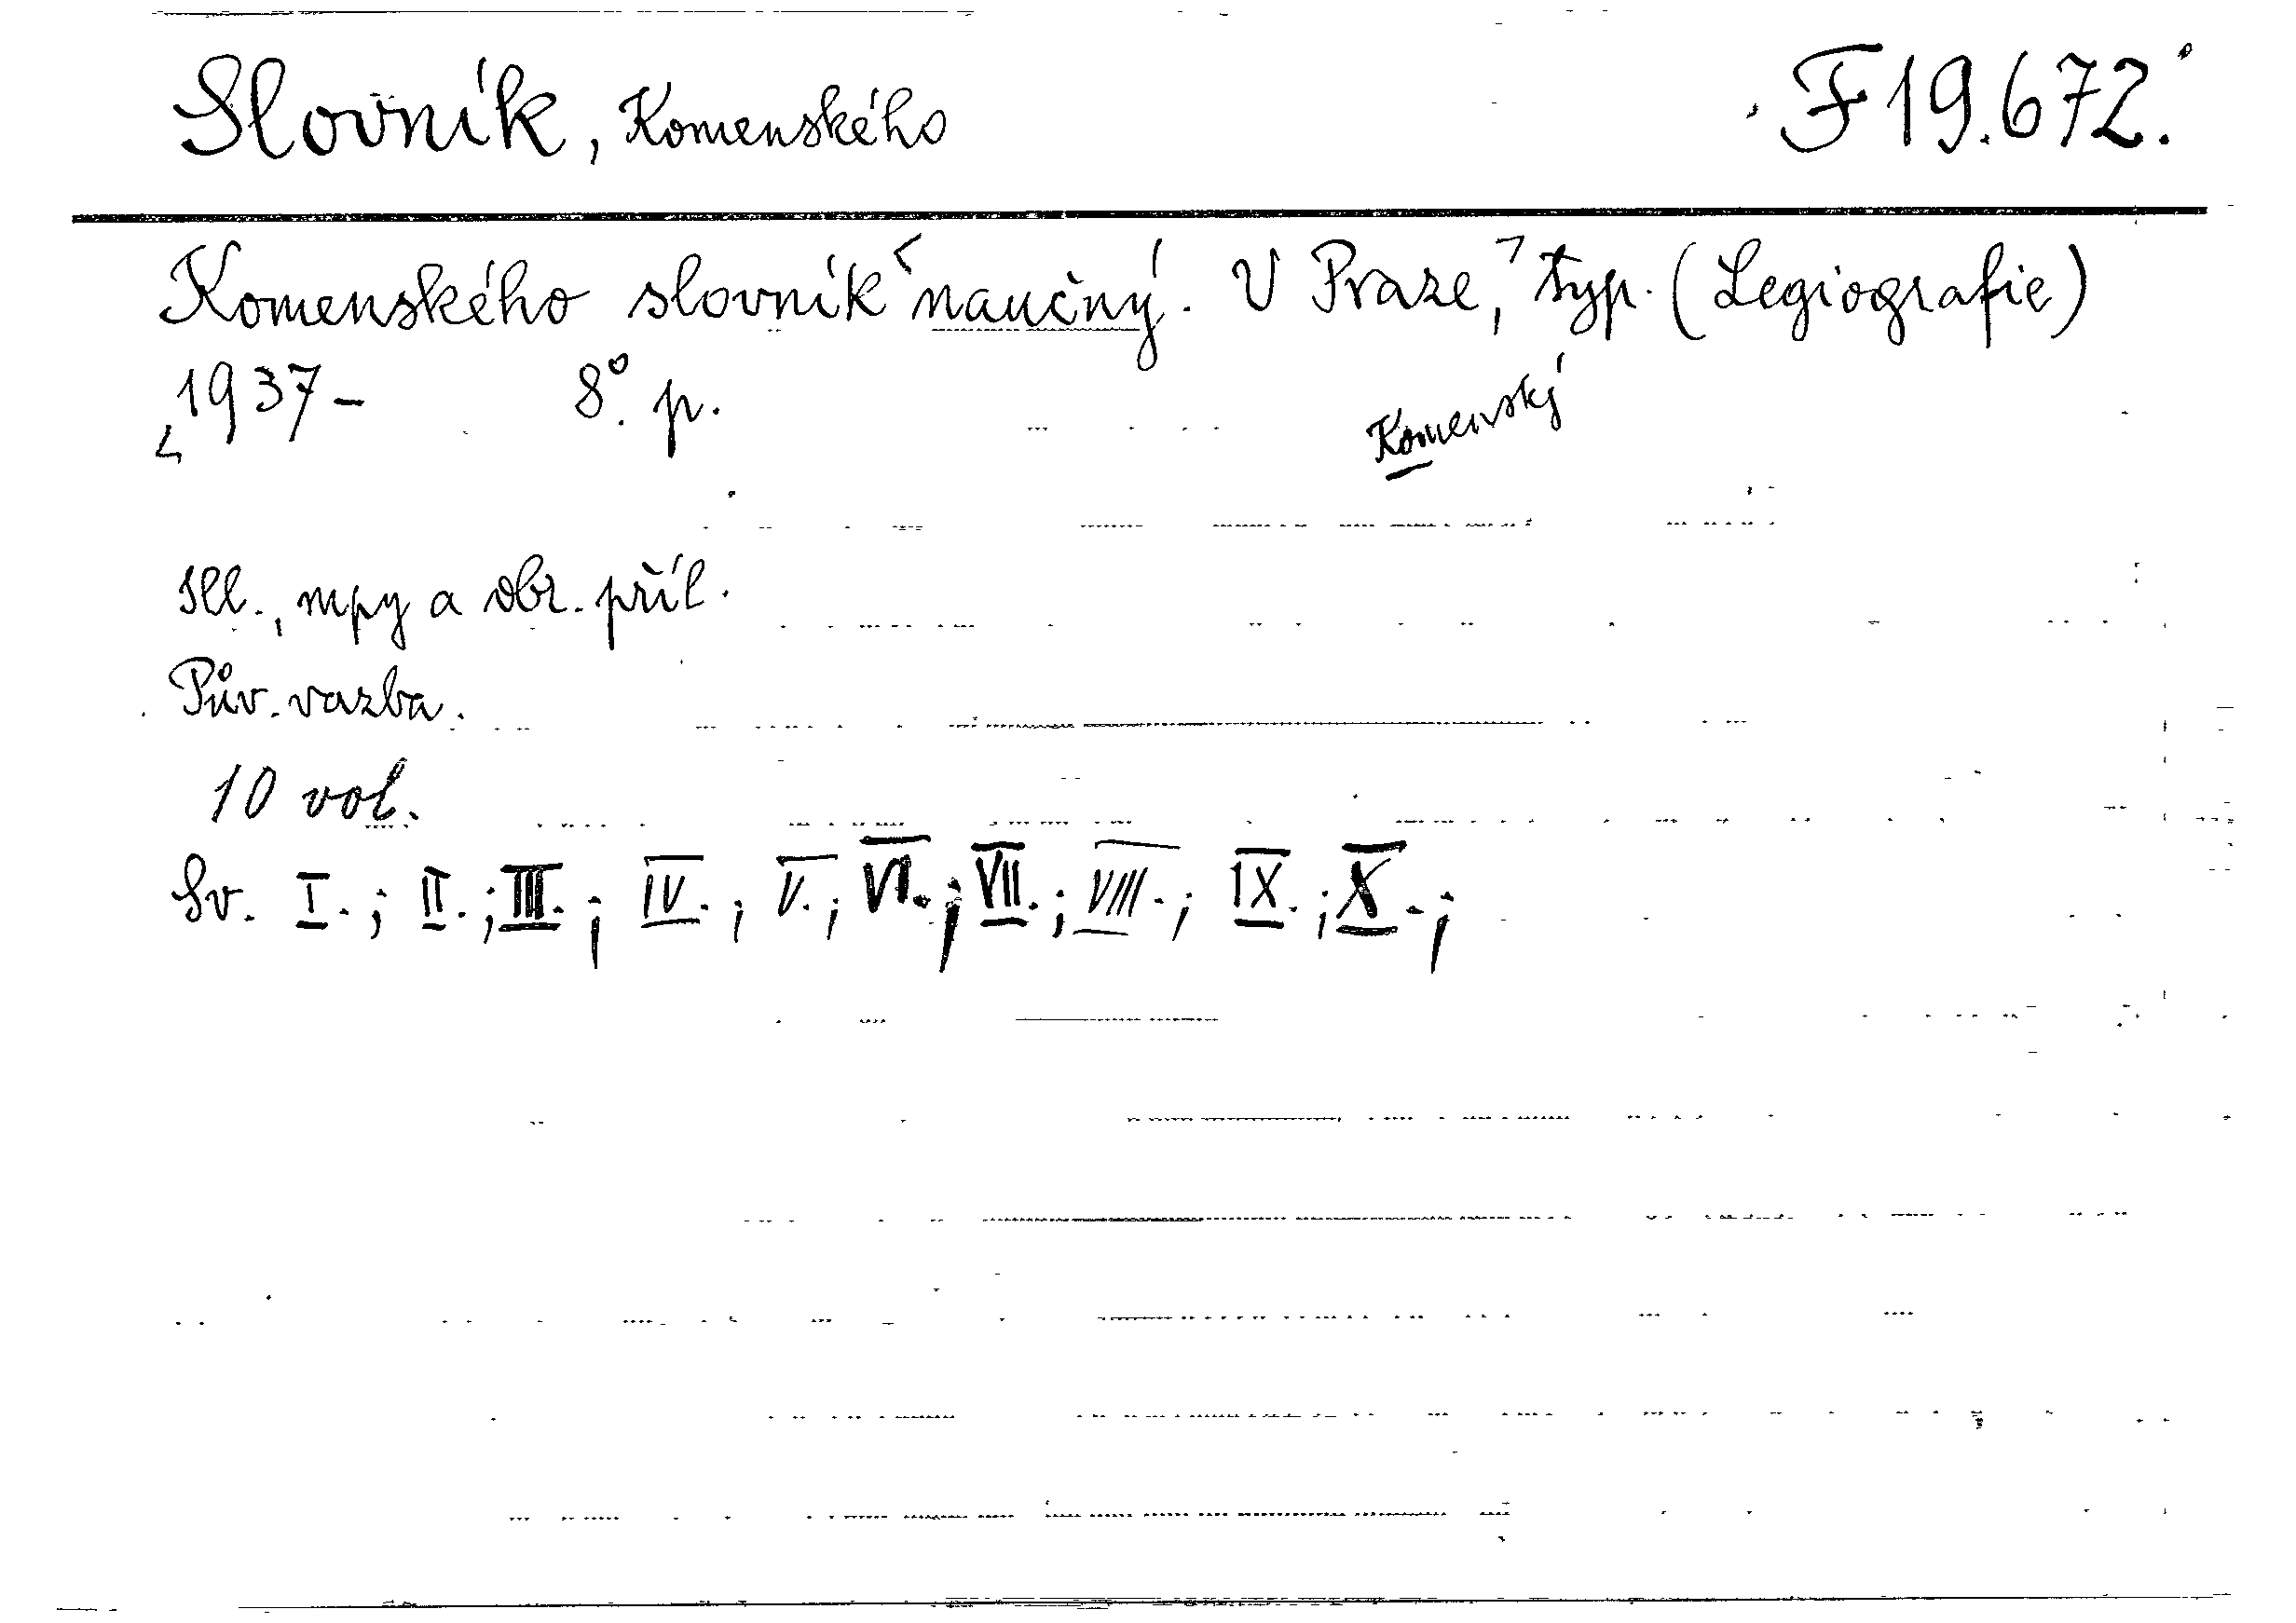 Slovník, Komenského F 19.672.
Komenského slovník naučný. V Praze, typ. (Legiografie)
1937- 8° p.
Komenský
Ill., mpy a obr. příl.
Pův. vazba.
10 vol.
Sv. I.; II.; III.; IV.; V.; VI.; VII.; VIII.; IX.; X.;